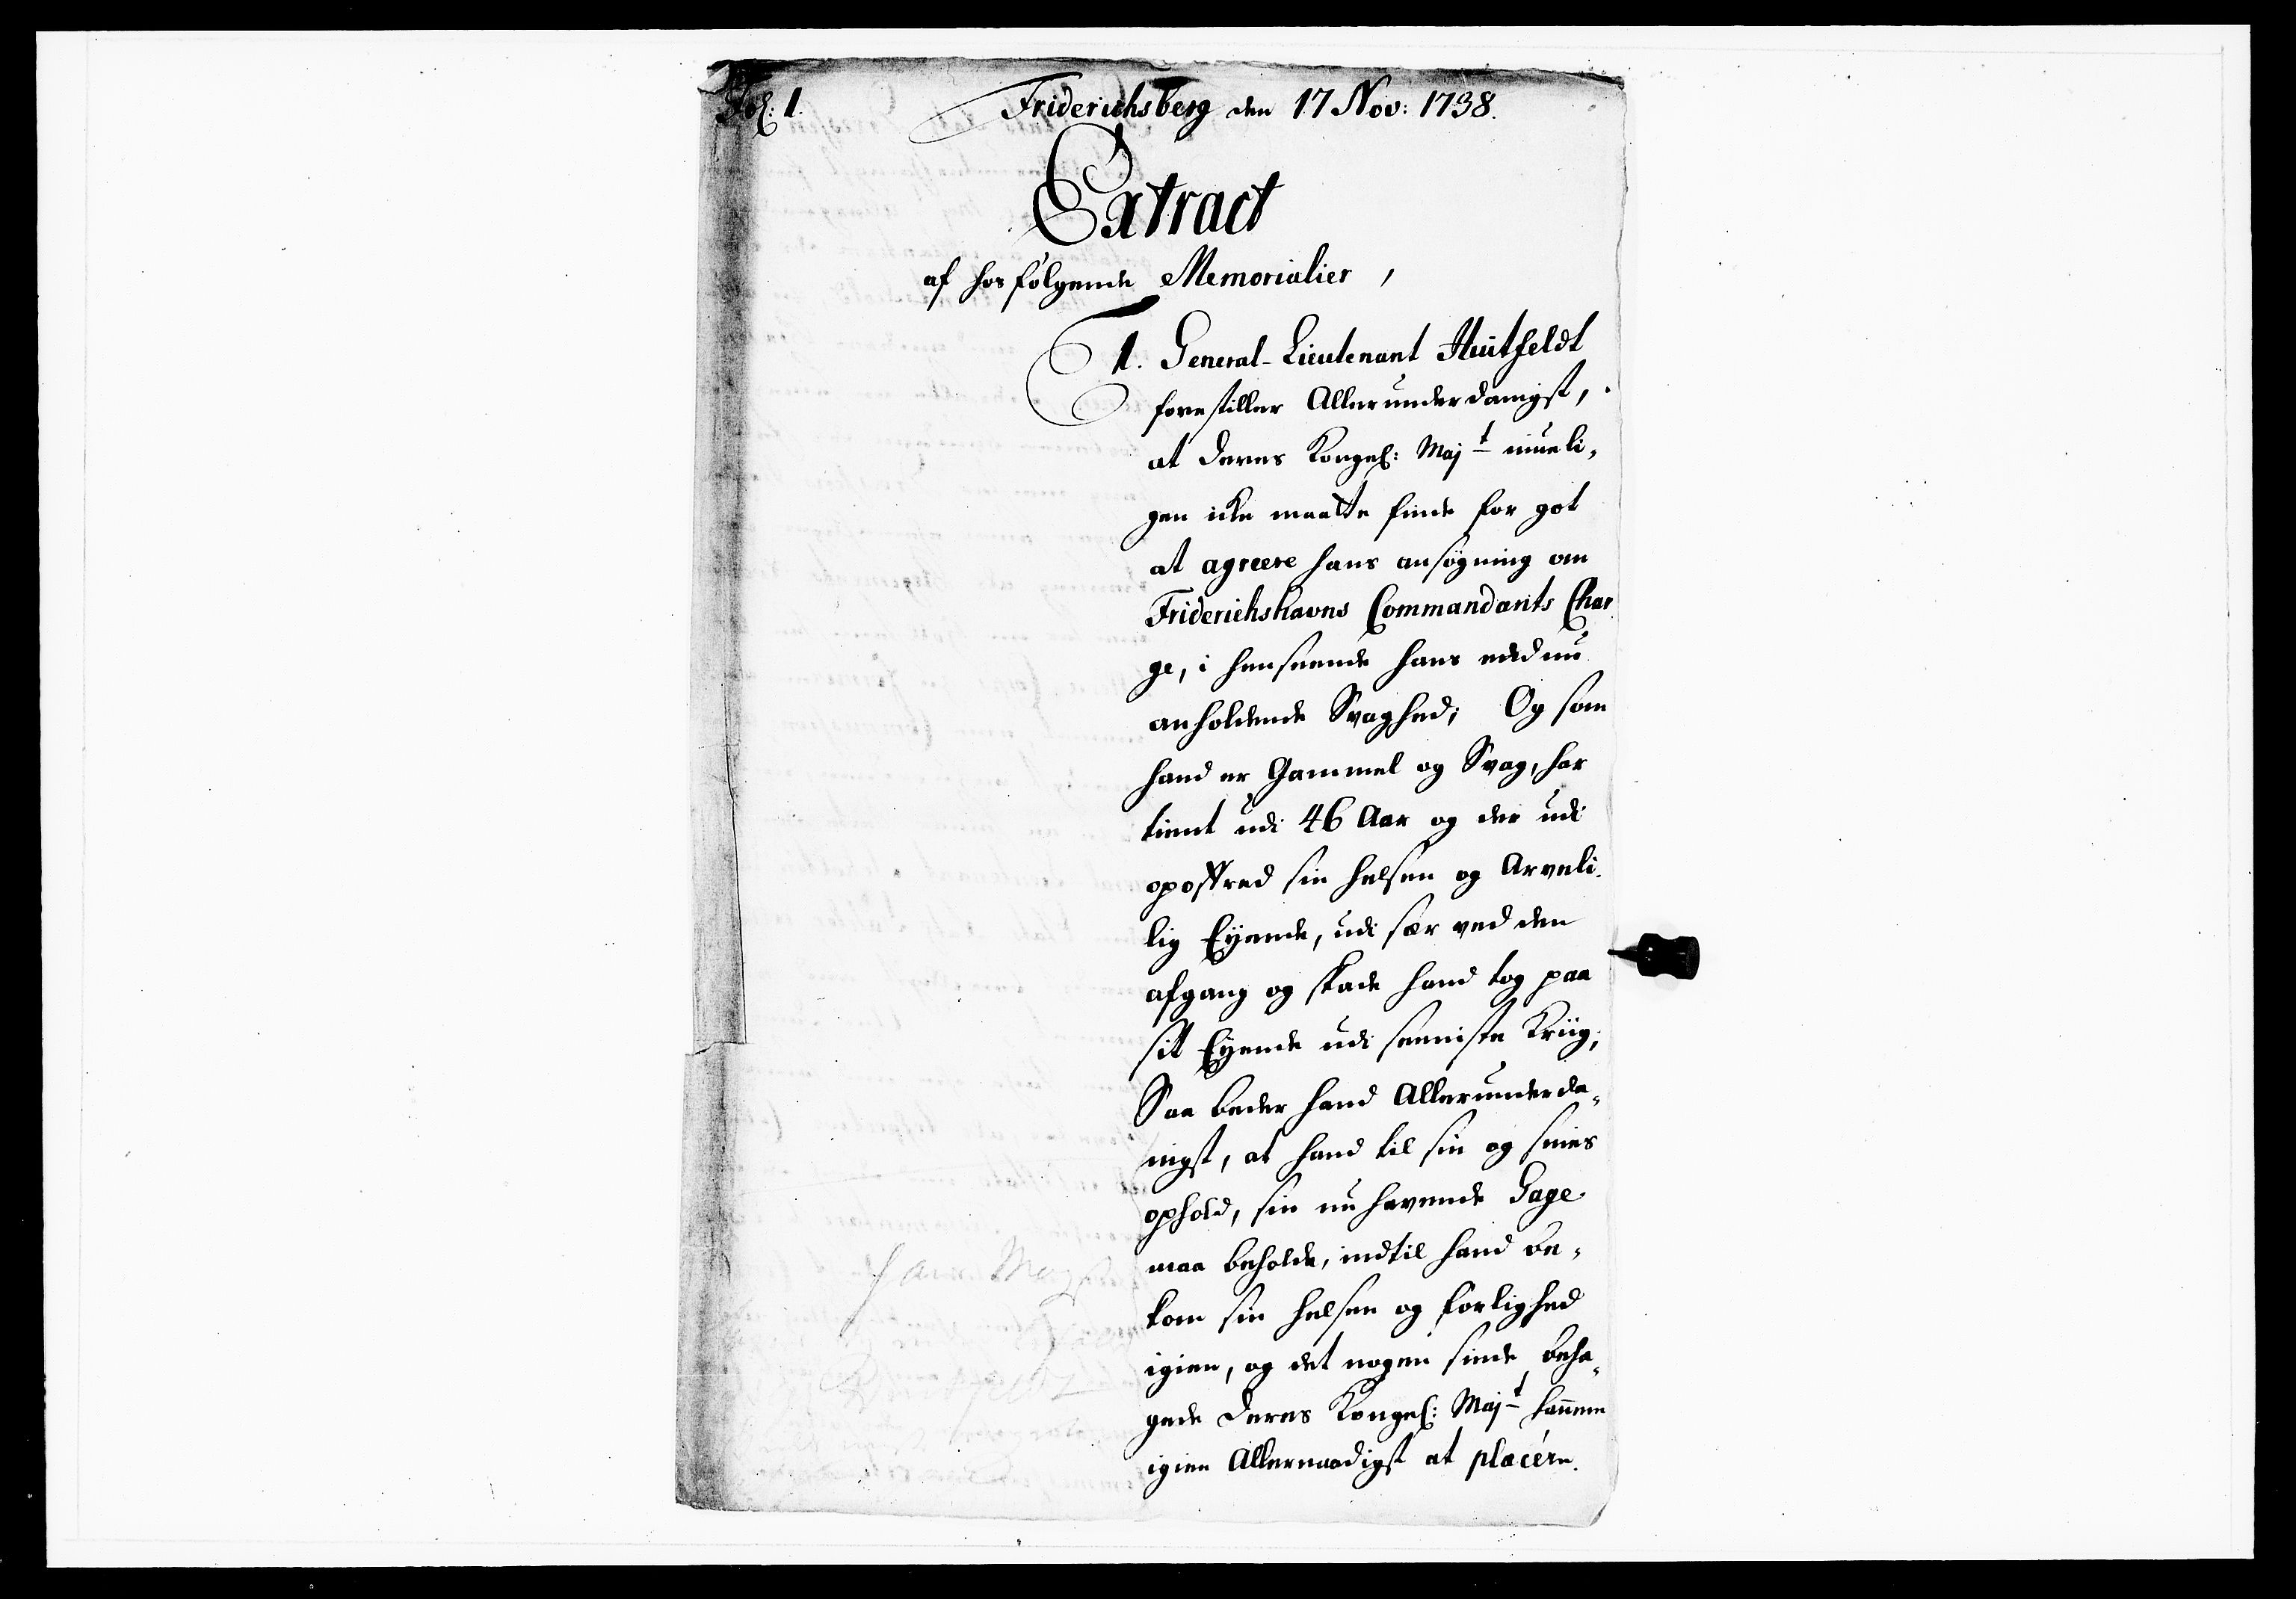 Fol: 1.
Friderichsberg den 17 Nov: 1738.
Extract
af hosfølgende Memorialier,
1. General-Lieutenant Huitfeldt
forestiller Allerunderdanigst,
at Deres Kongel: Majt mueli-
gen icke maatte finde for got
at agreere hans ansøgning om
Friderichshavns Commandants Char-
ge, i henseende hans endnu
anholdende Svaghed; Og som
hand er Gammel og Svag, har
tient udi 46 Aar og der udi
opoffred sin helsen og Arveli-
lig Eyende, udi sær ved den
afgang og skade hand tog paa
sit Eyende udi seeniste Kriig;
Saa beder hand Allerunderda-
nigst, at hand til sin og sines
ophold, sin nu havende Gage
maa beholde, indtil hand be-
kom sin helsen og førlighed
igien, og det nogen sinde beha-
gede Deres Kongel: Majt hannem
igien Allernaadigst at placére.